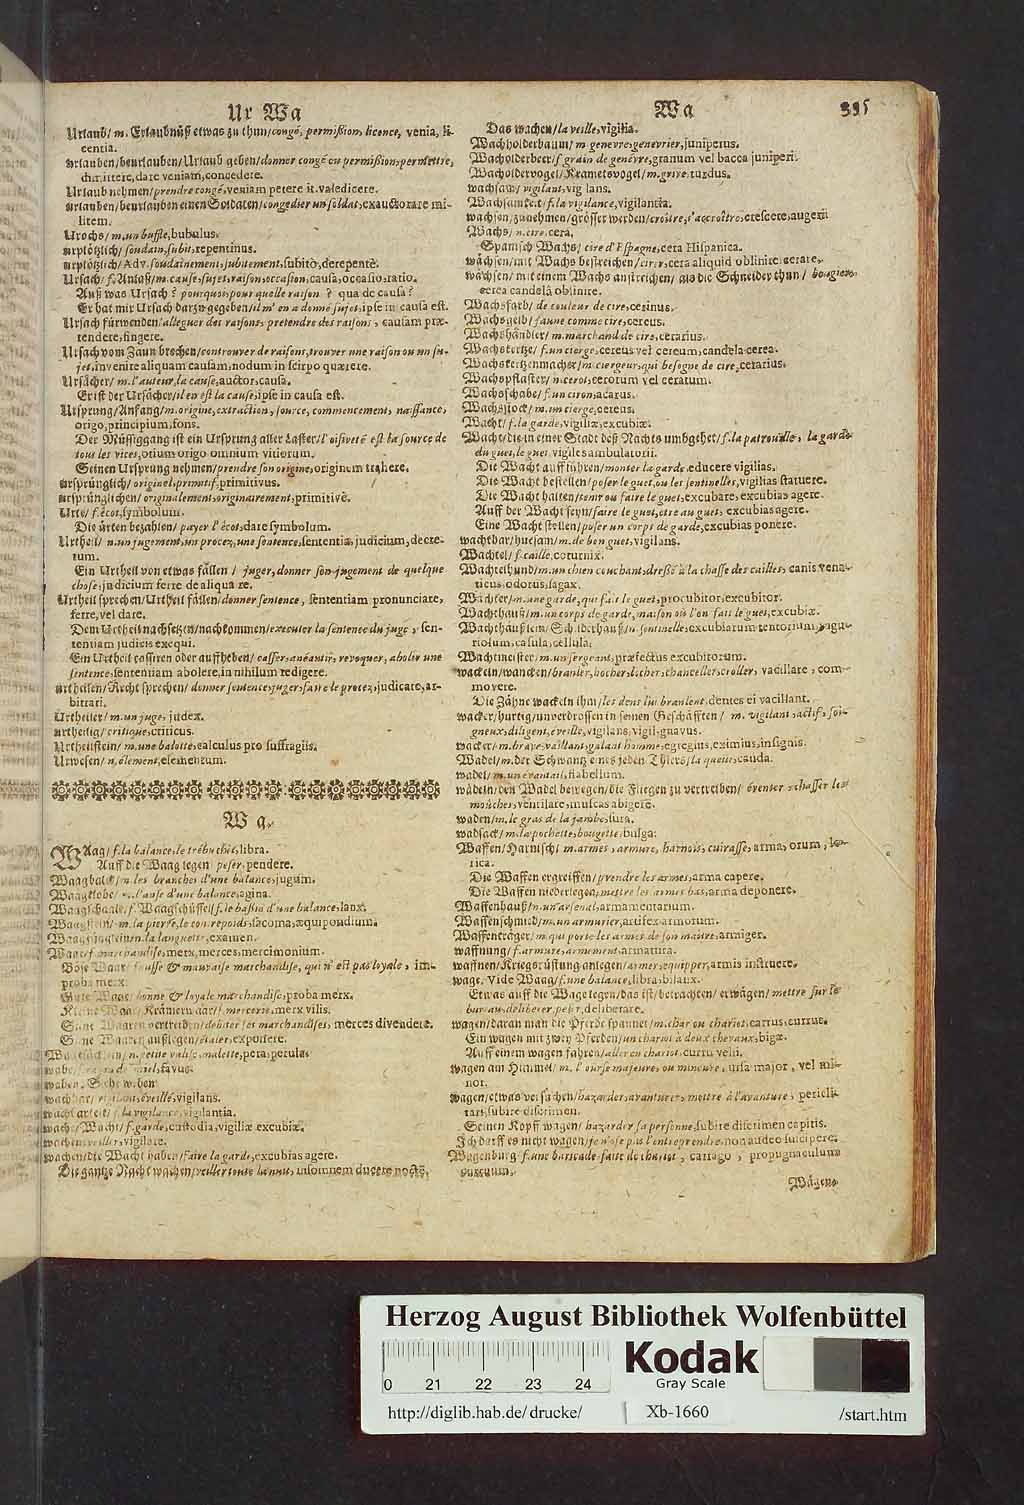 Ur Wa
Urlaub/ m. Erlaubnüß etwas zu thun/congé, permißion, licence, venia, li-
centia.
urlauben/beurlauben/Urlaub geben/donner congé ou permißion, permettre,
dimittere, dare veniam, concedere.
Urlaub nehmen/prendre congé, veniam petere it. valedicere.
urlauben/beurlauben einen Soldaten/congedier un soldat, exauctorare mi-
litem.
Urochs/ m. un buffle, bubulus.
urplötzlich/ soudain, subit, repentinus.
urplötzlich/ Adv. soudainement, subitement, subitò, derepentè.
Ursach/ f. Anlaß/ m. cause, sujet, raison, occasion, causa, occasio, ratio.
Auß was Ursach? pourquoy, pour quelle raison? qua de causa?
Er hat mir Ursach darzu gegeben/il m'en a donné sujet, ipse in causa est.
Ursach fürwenden/alleguer des raisons, pretendre des raisons, causam præ-
tendere, fingere.
Ursach vom Zaun brechen/controuver de raisons, trouver une raison ou un su-
jet, invenire aliquam causam, nodum in scirpo quærere.
Ursächer/ m. l'auteur, la cause, auctor, causa.
Er ist der Ursächer/il en est la cause, ipse in causa est.
Ursprung/Anfang/m. origine, extraction, source, commencement, naissance,
origo, principium, fons.
Der Müssiggang ist ein Ursprung aller Laster/l'oisiveté est la source de
tous les vices, otium origo omnium vitiorum.
Seinen Ursprung nehmen/prendre son origine, originem trahere.
ursprünglich/ originel, primitif, primitivus.
ursprünglichen/ originalement, originairement, primitivè.
Urte/ f. écot, symbolum.
Die ürten bezahlen/ payer l'écot, dare symbolum.
Urtheil/ n. un jugement, un procez, une sentence, sententia, judicium, decre-
tum.
Ein Urtheil von etwas fällen/ juger, donner son jugement de quelque
chose, judicium ferre de aliqua re.
Urtheil sprechen/Urtheil fällen/donner sentence, sententiam pronunciare,
ferre, vel dare.
Dem Urtheil nachsetzen/nachkommen/executer la sentence du juge, sen-
tentiam judicis exequi.
Ein Urtheil cassiren oder auffheben/ casser, anéantir, revoquer, abolir une
sentence, sententiam abolere, in nihilum redigere.
urtheilen/Recht sprechen/ donner sentence, juger, faire le procez, judicare, ar-
bitrari.
Urtheiler/ m. un juge, judex.
urtheilig/ critique, criticus.
Urtheilstein/ m. une balotte, calculus pro suffragiis.
Urwesen/ n. élement, elementum.
Wa.
WAag/ f. la balance, le trébuchet, libra.
Auff die Waag legen/ peser, pendere.
Waagbalck/ les branches d'une balance, jugum.
Waagklobe/ l'anse d'une balance, agina.
Waagschaale, f. Waagschüssel/ f. le bassin d'une balance, lanx.
Waagstein/ m. la pierre, le contrepoids, sacoma, æquipondium.
Waagzünglein/ la languette, examen.
Waar/ f. marchandise, merx, merces, mercimonium.
Böse Waar/ fausse & mauvaise marchandise, qui n'est pas loyale, im-
proba merx.
Gute Waar/ bonne & loyale marchandise, proba merx.
Kleine Waar/ Krämerwaar/ mercerie, merx vilis.
Seine Waaren vertreiben/ debiter ses marchandises, merces divendere.
Seine Waaren außlegen/ étaler, exponere.
Waatsäcklein/ n. petite valise, malette, pera, perula.
wabe/ rayon de miel, favus.
waben. Siehe weben
wachbar/ vigilant, éveillé, vigilans.
wachbarkeit/ f. la vigilance, vigilantia.
wache/ Wacht/ f. garde, custodia, vigiliæ excubiæ.
wachen/ veiller, vigilare.
wachen/die Wacht haben/faire la garde, excubias agere.
Die gantze Nacht wachen/veiller toute la nuit, insomnem ducere noctem.
Wa 335
Das wachen/la veille, vigilia.
Wachholderbaum/ m. genevre, genevrier, juniperus.
Wacholderbeer/ f. grain de genévre, granum vel bacca juniperi.
Wacholdervogel/ Krametsvogel/ m. grive, turdus.
wachsam/ vigilant, vigilans.
Wachsamkeit/ f. la vigilance, vigilantia.
wachsen/zunehmen/grösser werden/croître, s'accroître, crescere, augeri.
Wachs/ n. cire, cera.
Spanisch Wachs/ cire d'Espagne, cera Hispanica.
wächsen/mit Wachs bestreichen/cirer, cera aliquid oblinire, cerare.
wächsen/ mit einem Wachs anstreichen/ als die Schneider thun/ bougier,
cerea candelâ oblinire.
Wachsfarb/ de couleur de cire, cerinus.
Wachsgelb/ jaune comme cire, cereus.
Wachshändler/ m. marchand de cire, cerarius.
Wachskertze/ f. un cierge, cereus vel cereum, candela cerea.
Wachskertzenmacher/ m. ciergeur, qui besogne de cire, cerarius.
Wachspflaster/ n. cerot, cerotum vel ceratum.
Wachsschabe/ f. un ciron, acarus.
Wachsstock/ m. un cierge, cereus.
Wacht/ f. la garde, vigiliæ, excubiæ.
Wacht/die in einer Stadt deß Nachts umbgehet/ f. la patrouille, la garde
du guet, le guet, vigiles ambulatorii.
Die Wacht auffführen/ monter la garde, educere vigilias.
Die Wacht bestellen/ poser le guet, ou les sentinelles, vigilias statuere.
Die Wacht halten/ tenir ou faire le guet, excubare, excubias agere.
Auff der Wacht seyn/ faire le guet, etre au guet, excubias agere.
Eine Wacht stellen/ poser un corps de garde, excubias ponere.
wachtbar/hutsam/ m. de bon guet, vigilans.
Wachtel/ f. caille, coturnix.
Wachtelhund/ m. un chien couchant, dressé à la chasse des cailles, canis vena-
ticus, odorus, sagax.
Wächter/ m. une garde, qui fait le guet, procubitor, excubitor.
Wachthauß/ m. un corps de garde, maison où l'on fait le guet, excubiæ.
Wachthäußlein/ Schilderhauß/ n. sentinelle, excubiarum tentorium, tugu-
riolum, casula, cellula.
Wachtmeister/ m. un sergeant, præfectus excubitorum.
wackeln/wancken/branler, hocher, locher, chanceller, croller, vacillare, com-
movere.
Die Zähne wackeln ihm/les dens lui branlent, dentes ei vacillant.
wacker/hurtig/unverdrossen in seinen Geschäfften/ m. vigilant, actif, soi-
gneux, diligent, éveillé, vigilans, vigil, gnavus.
wacker/ m. brave, vaillant, galant homme, egregius, eximius, insignis.
Wadel/ m. der Schwantz eines jeden Thiers/la queue, cauda.
wadel/ m. un évantail, flabellum.
wädeln/den Wadel bewegen/die Fliegen zu vertreiben/ éventer, chasser les
moûches, ventilare, muscas abigere.
waden/ m. le gras de la jambe, sura.
wadsack/ m. la pochette, bougette, bulga.
Waffen/ Harnisch/ m. armes, armure, harnois, cuirasse, arma, orum, lo-
rica.
Die Waffen ergreiffen/ prendre les armes, arma capere.
Die Waffen niederlegen, mettre les armes bas, arma deponere.
Waffenhauß/ n. un arsenal, armamentarium.
Waffenschmid/ m. un armurier, artifex armorum.
Waffenträger/ m. qui porte les armes de son maître, armiger.
waffnung/ f. armure, armement, armatura.
waffnen/Kriegsrüstung anlegen/ armer, equipper, armis instruere.
wage. Vide Waag/ f. une balance, libra, bilanx.
Etwas auff die Wage legen/das ist/betrachten/ erwägen/ mettre sur le
bureau, deliberer, peser, deliberare.
wagen/daran man die Pferde spannet/ m. char ou chariot, carrus, currus.
Ein wagen mit zwey Pferden/un chariot à deux chevaux, bigæ.
Auff einem wagen fahren/ aller en chariot, curru vehi.
wagen am Himmel/ m. l'ourse majeure, ou mineure, ursa major, vel mi-
nor.
wagen/etwas versuchen/hazarder, avanturer, mettre à l'avanture, pericli-
tari, subire discrimen.
Seinen Kopff wagen/ hazarder sa personne, subire discrimen capitis.
Ich darff es nicht wagen/je n'ose pas l'entreprendre, non audeo suscipere.
Wagenburg/ f. une baricade faite de chariot, carrago, propugnaculum
Wägen-
Herzog August Bibliothek Wolfenbüttel
Kodak
Gray Scale
0 21 22 23 24
http://diglib.hab.de/drucke/ Xb-1660 /start.htm